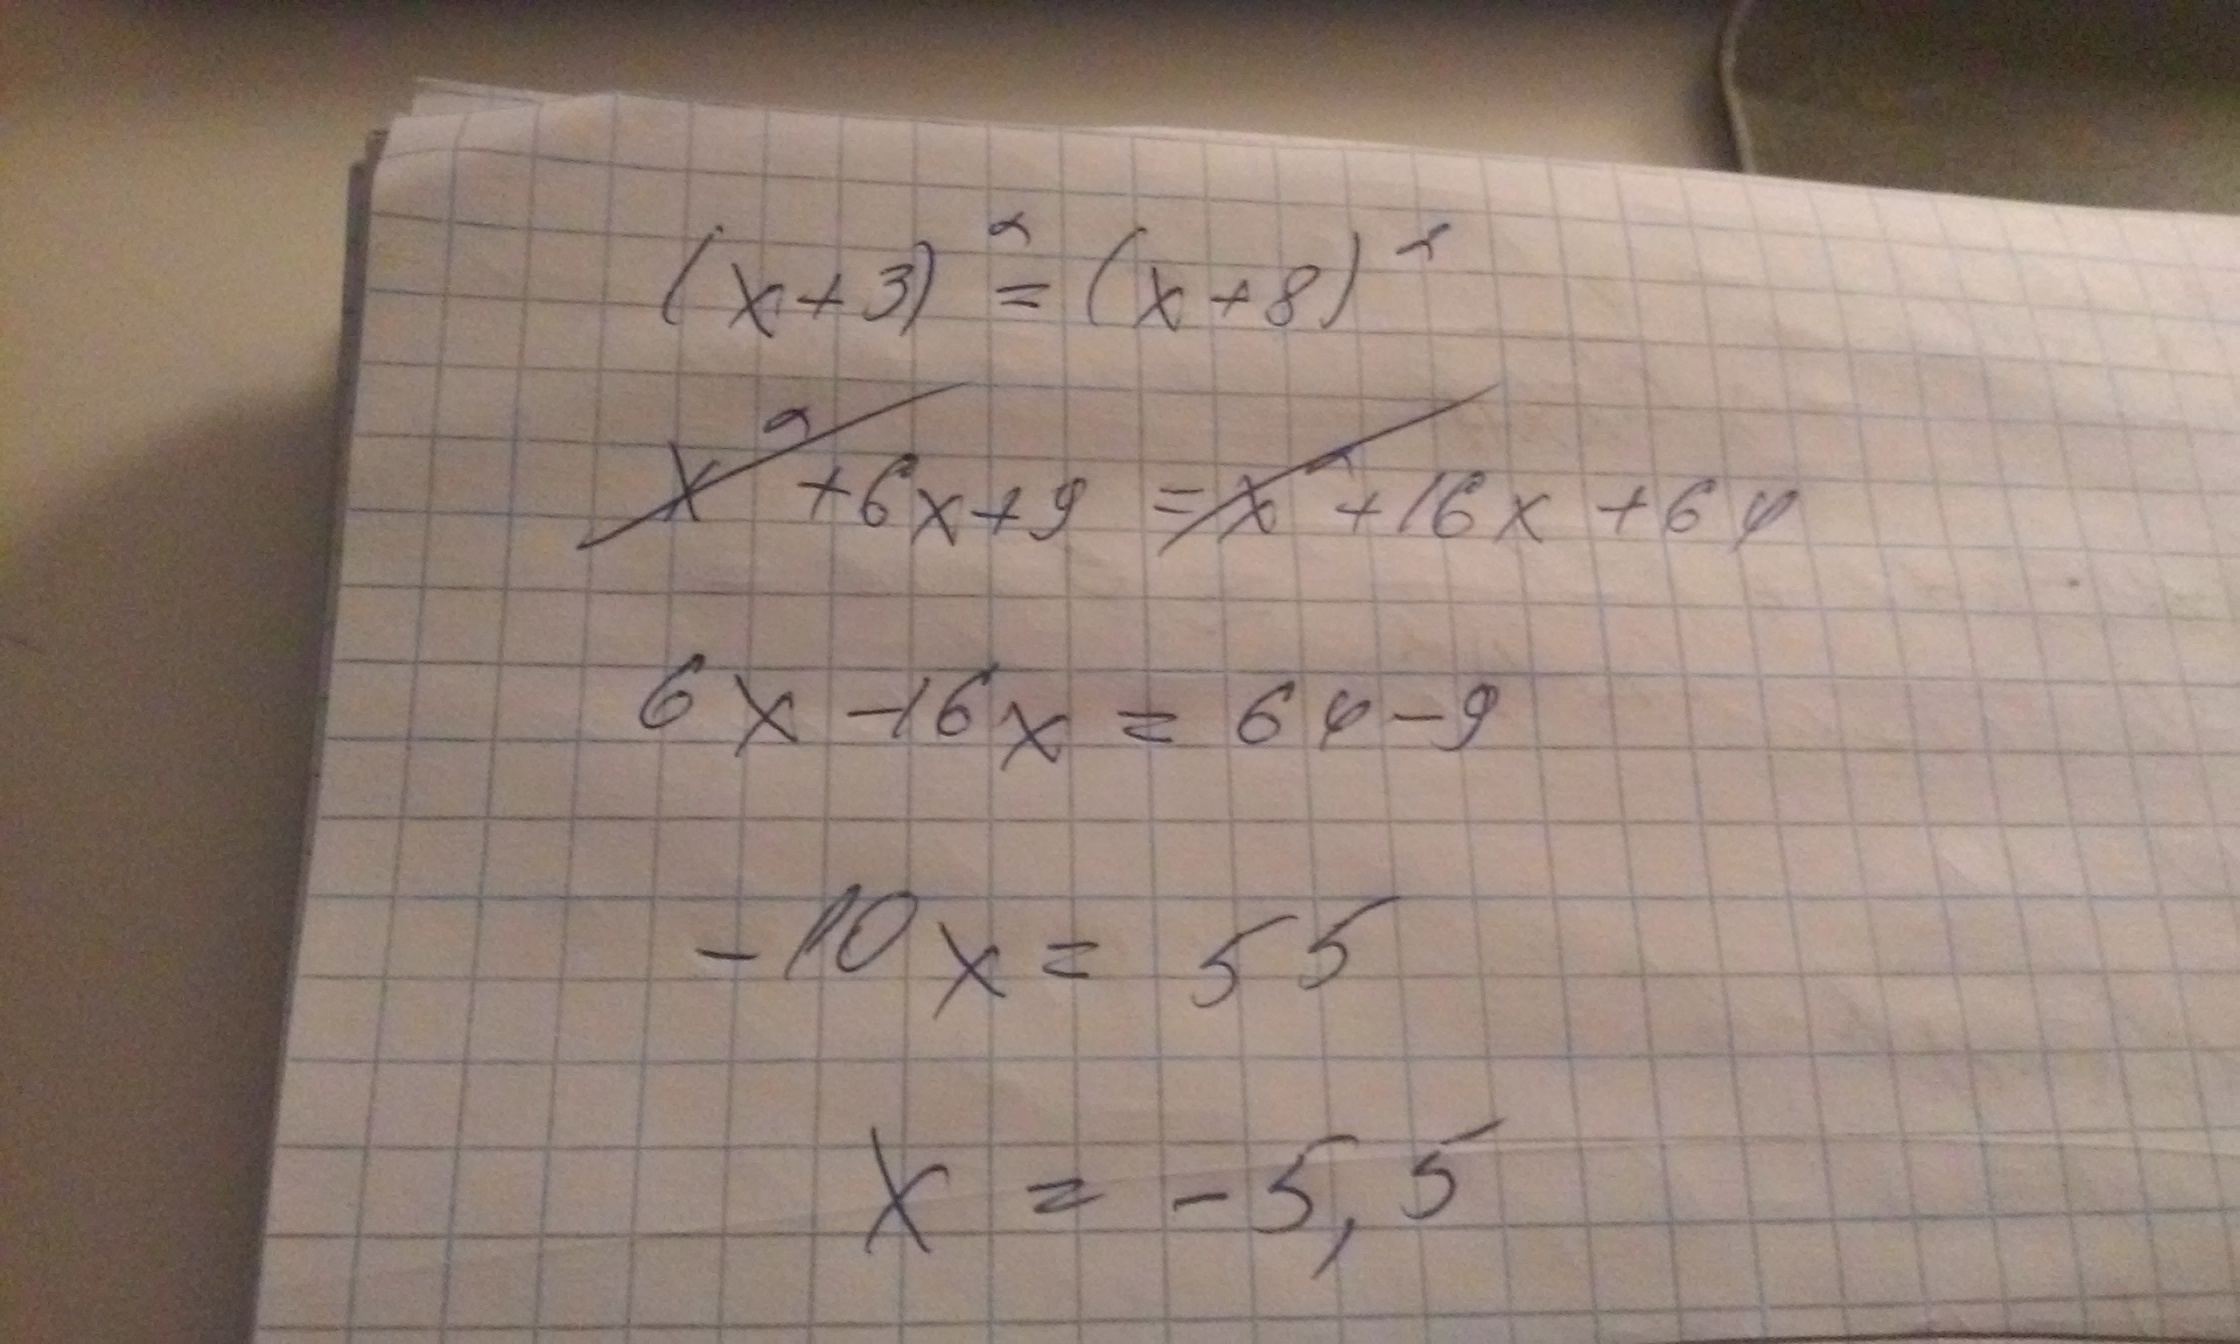 (x+3)² = (x+8)²
x² +6x+9 = x² +16x +64
6x -16x = 64-9
-10x = 55
x = -5,5